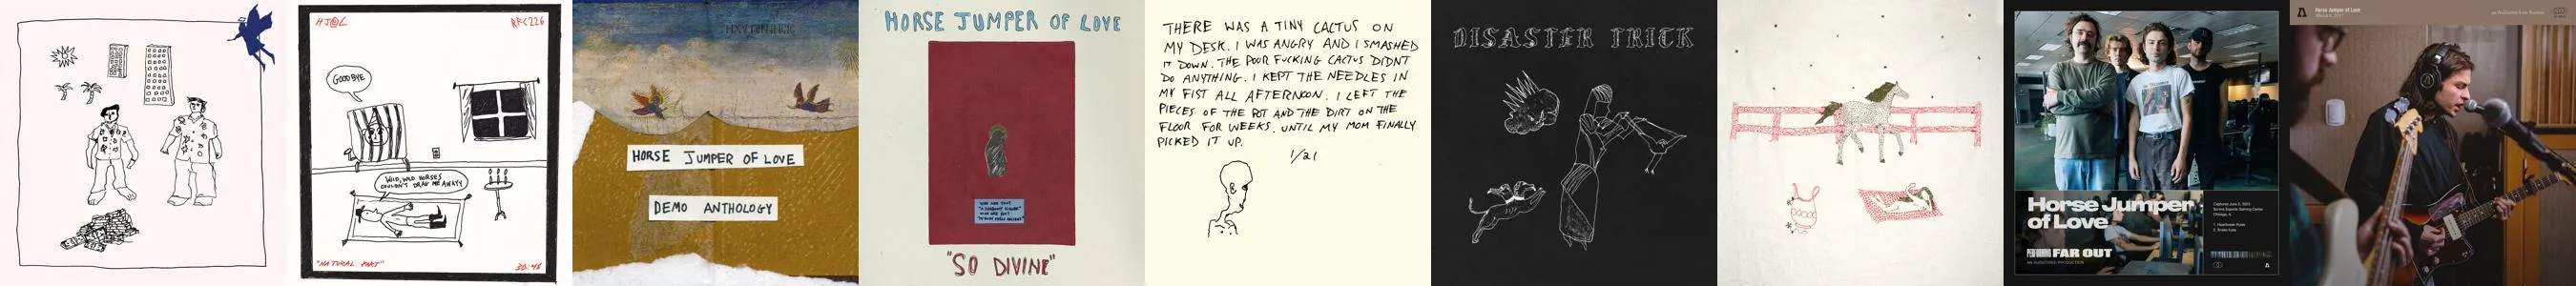 HJ@L
RFC226
GOODBYE
WILD, WILD HORSES
COULDN'T DRAG ME AWAY
"NATURAL PART"
30:48
HORSE JUMPER OF LOVE
DEMO ANTHOLOGY
HORSE JUMPER OF LOVE
"SO DIVINE"
THERE WAS A TINY CACTUS ON
MY DESK. I WAS ANGRY AND I SMASHED
IT DOWN. THE POOR FUCKING CACTUS DIDNT
DO ANYTHING. I KEPT THE NEEDLES IN
MY FIST ALL AFTERNOON. I LEFT THE
PIECES OF THE POT AND THE DIRT ON THE
FLOOR FOR WEEKS. UNTIL MY MOM FINALLY
PICKED IT UP.
1/21
DISASTER TRICK
Horse Jumper
of Love
FAR OUT
Horse Jumper of Love